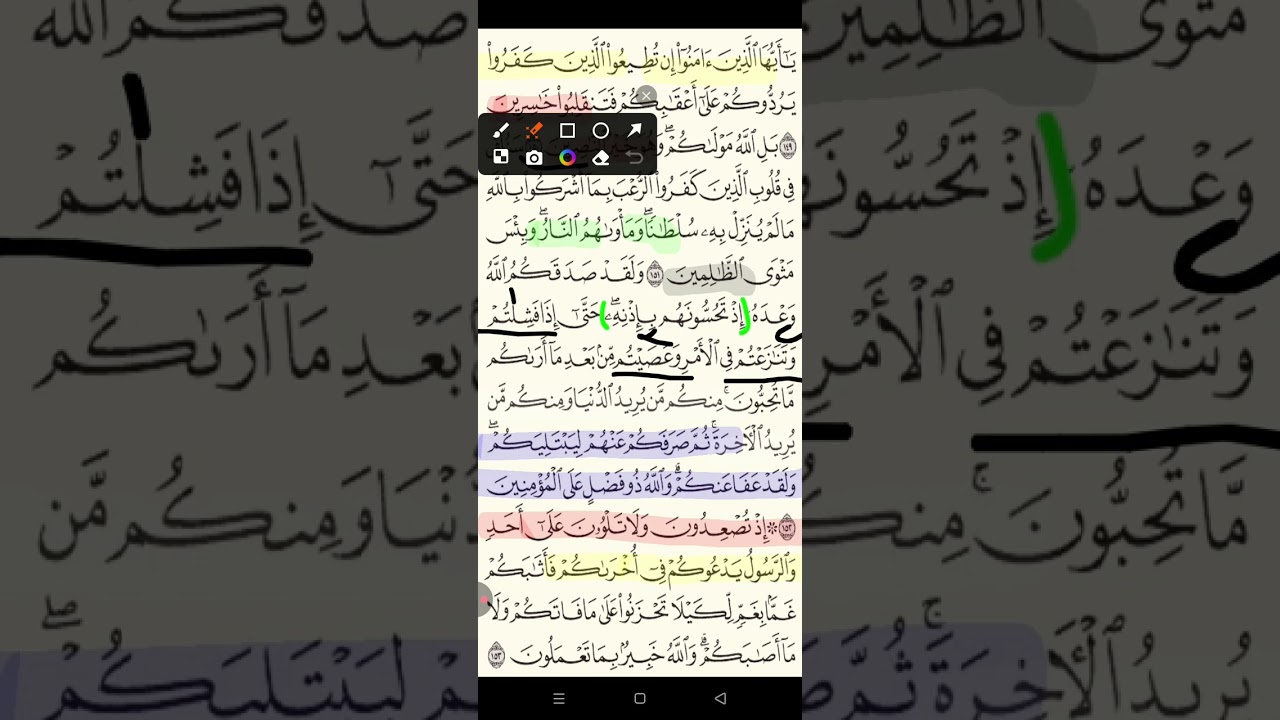 يَٰٓأَيُّهَا ٱلَّذِينَ ءَامَنُوٓا۟ إِن تُطِيعُوا۟ ٱلَّذِينَ كَفَرُوا۟
يَرُدُّوكُمْ عَلَىٰٓ أَعْقَٰبِكُمْ فَتَنقَلِبُوا۟ خَٰسِرِينَ
١٤٩ بَلِ ٱللَّهُ مَوْلَىٰكُمْ ۖ وَهُوَ
فِى قُلُوبِ ٱلَّذِينَ كَفَرُوا۟ ٱلرُّعْبَ بِمَآ أَشْرَكُوا۟ بِٱللَّهِ
مَا لَمْ يُنَزِّلْ بِهِۦ سُلْطَٰنًا ۖ وَمَأْوَىٰهُمُ ٱلنَّارُ ۚ وَبِئْسَ
مَثْوَى ٱلظَّٰلِمِينَ ١٥١ وَلَقَدْ صَدَقَكُمُ ٱللَّهُ
وَعْدَهُۥٓ إِذْ تَحُسُّونَهُم بِإِذْنِهِۦ ۖ حَتَّىٰٓ إِذَا فَشِلْتُمْ
وَتَنَٰزَعْتُمْ فِى ٱلْأَمْرِ وَعَصَيْتُم مِّنۢ بَعْدِ مَآ أَرَىٰكُم
مَّا تُحِبُّونَ ۚ مِنكُم مَّن يُرِيدُ ٱلدُّنْيَا وَمِنكُم مَّن
يُرِيدُ ٱلْءَاخِرَةَ ۚ ثُمَّ صَرَفَكُمْ عَنْهُمْ لِيَبْتَلِيَكُمْ ۖ
وَلَقَدْ عَفَا عَنكُمْ ۗ وَٱللَّهُ ذُو فَضْلٍ عَلَى ٱلْمُؤْمِنِينَ
١٥٢ ۞ إِذْ تُصْعِدُونَ وَلَا تَلْوُۥنَ عَلَىٰٓ أَحَدٍ
وَٱلرَّسُولُ يَدْعُوكُمْ فِىٓ أُخْرَىٰكُمْ فَأَثَٰبَكُمْ
غَمًّۢا بِغَمٍّ لِّكَيْلَا تَحْزَنُوا۟ عَلَىٰ مَا فَاتَكُمْ وَلَا
مَآ أَصَٰبَكُمْ ۗ وَٱللَّهُ خَبِيرٌۢ بِمَا تَعْمَلُونَ ١٥٣